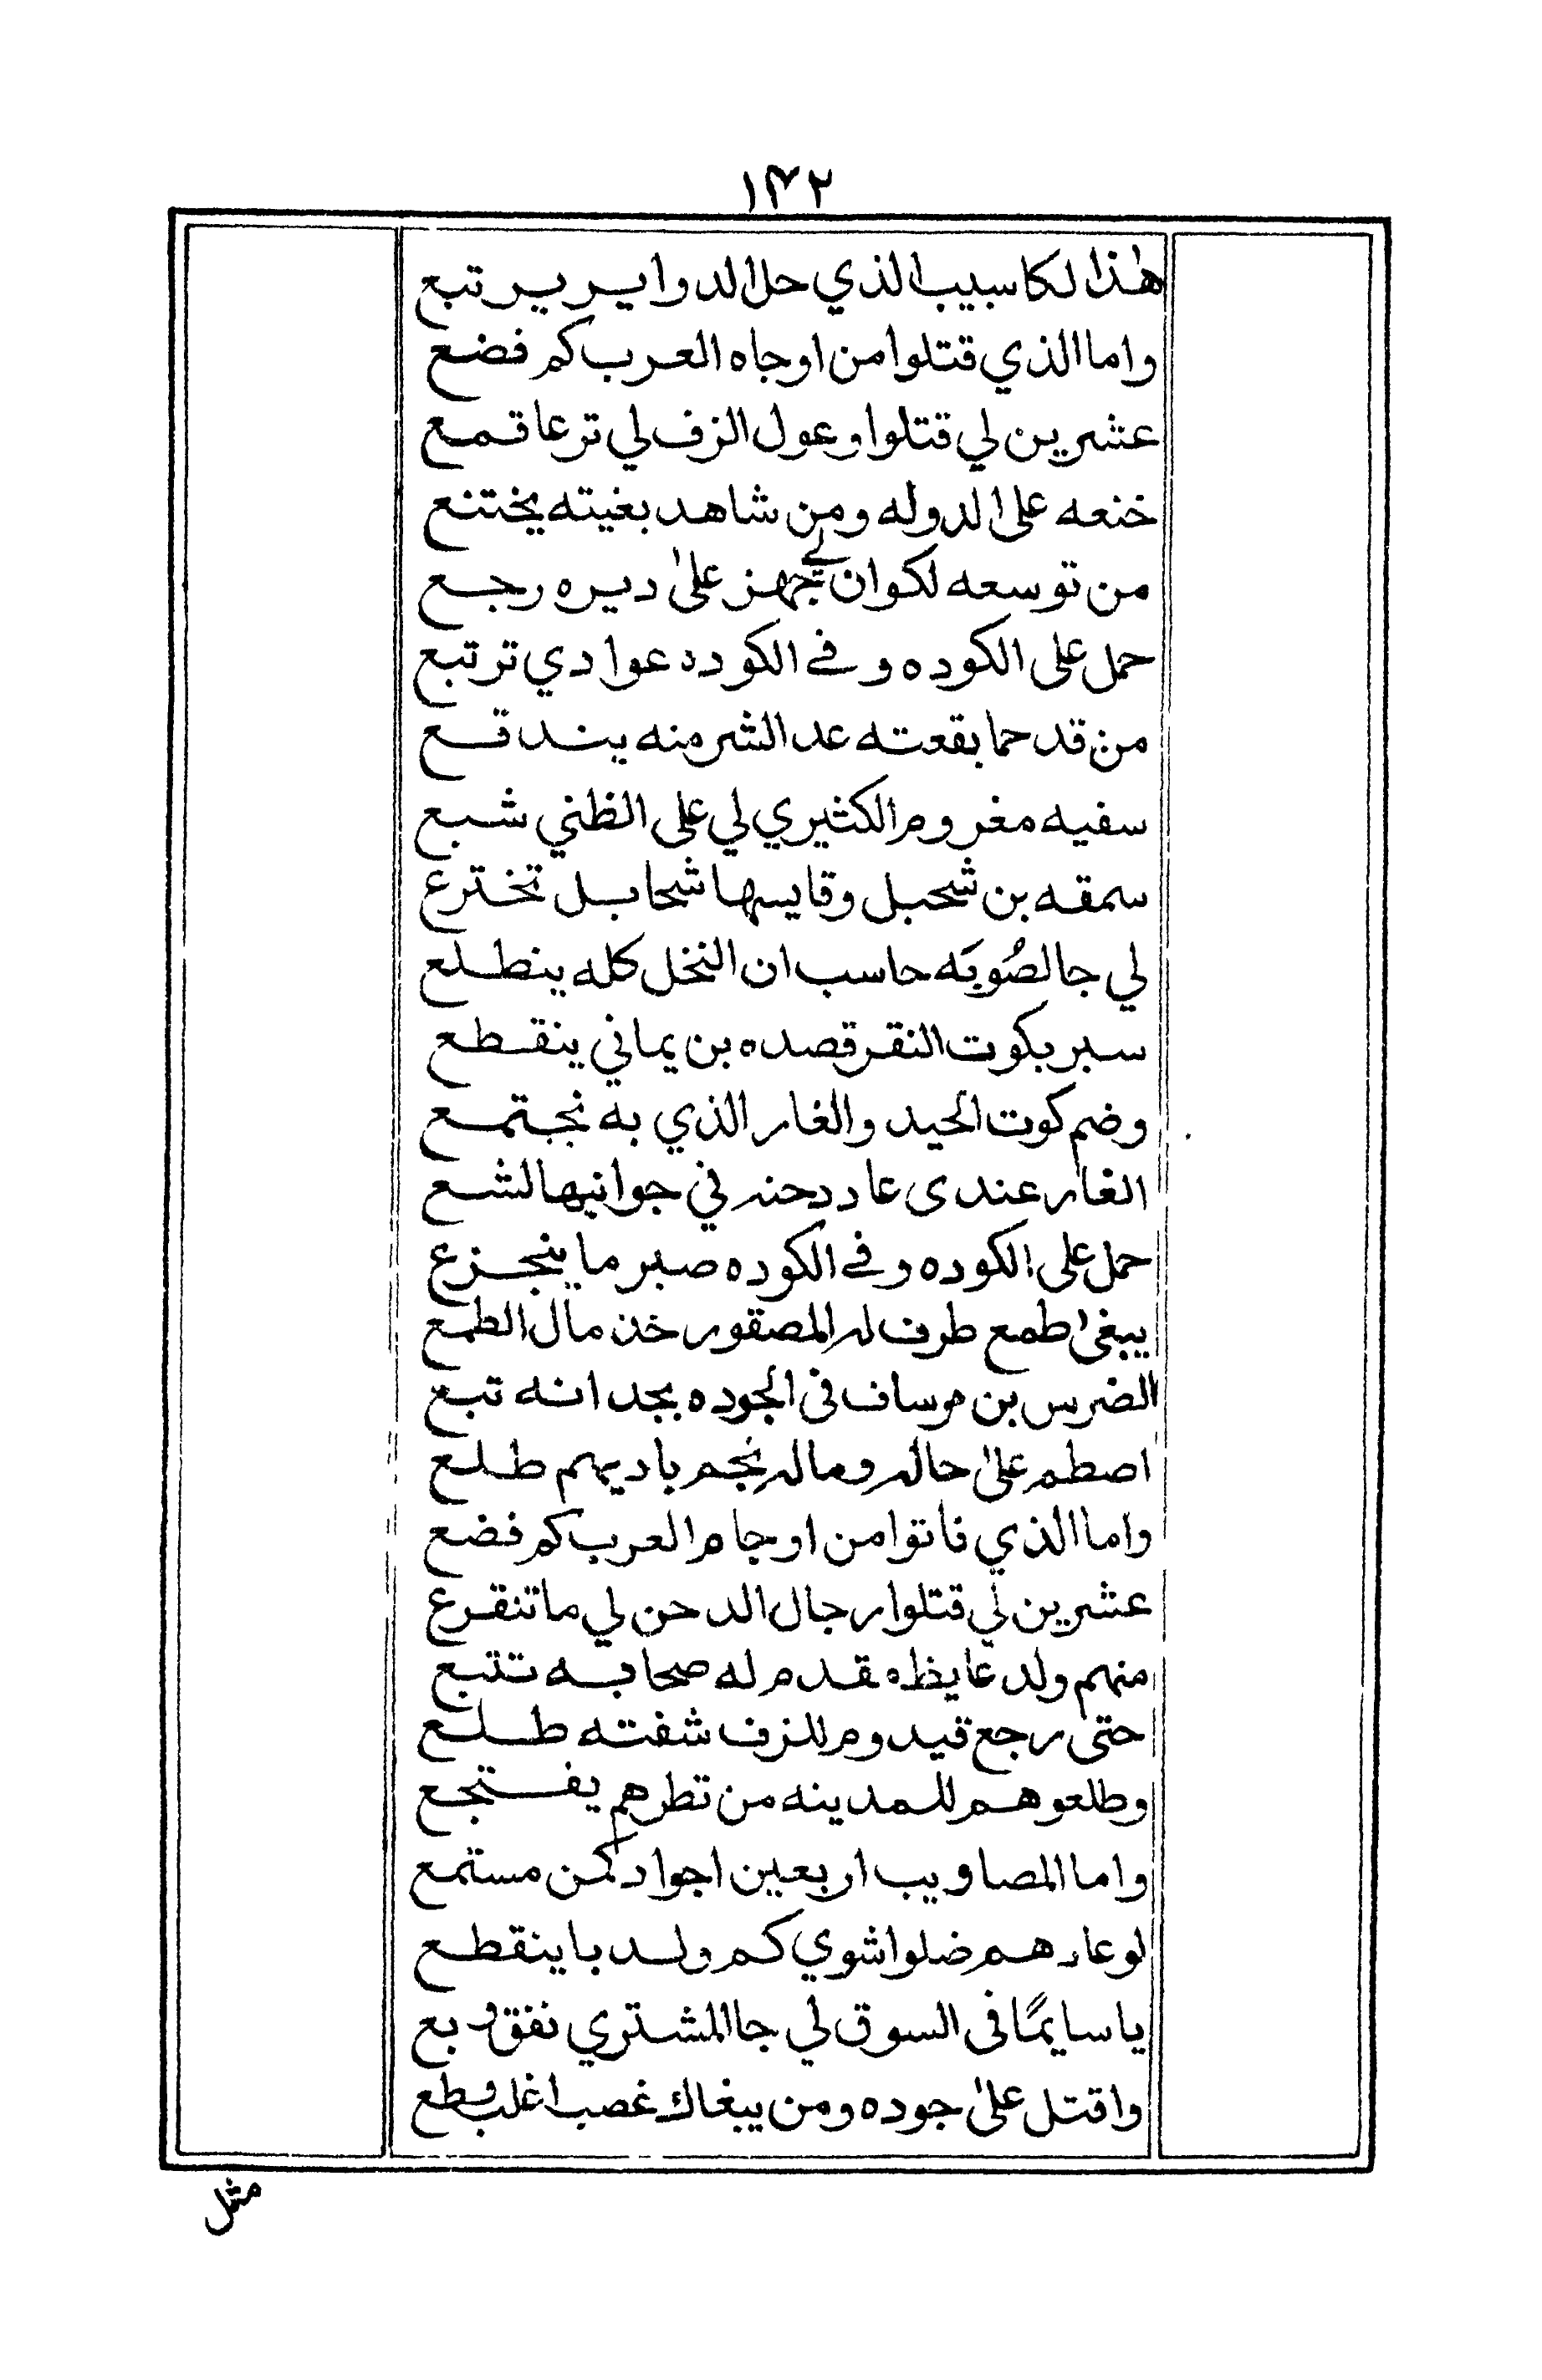 ١٤٢
هٰذا لكاسبيب الذي حل الدواير يرتبع
واما الذي قتلوا من اوجاه العرب كم فضع
عشرين لي قتلوا وعول الزف لي ترعا قمع
خنعه على الدوله ومن شاهد بغيته يختنع
من توسعه لكوان لي تجهز علىٰ ديره رجع
حمل على الكوده وفي الكوده عوادي ترتبع
من قد حما بقعته عد الشر منه يندقع
سفيه مغروم الكثيري لي على الظني شبع
سمقه بن شحبل وقايسها شحابل تخترع
لي جا لصُويَه حاسب ان النخل كله ينطلع
سبر بكوت النقر قصده بن يماني ينقطع
وضم كوت الحيد والغار الذي به نجتمع
الغار عندى عاد دحنه في جوانيها لشع
حمل على الكوده وفي الكوده صبر ما ينجزع
يبغى اطمع طرف له المصقور خذ مال الطمع
الضرس بن مرساف فى الجوده بجد انه تبع
اصطم علىٰ حاله وماله نجم باديهم طلع
واما الذي فاتوا من اوجام العرب كم فضع
عشرين لي قتلوا رجال الدحن لي ما تنقرع
منهم ولد عايظه مقدم له صحابه تتبع
حتى رجع قيدوم للزف شفته طلع
وطلعوهم للمدينه من تطرهم يفتجع
واما المصاويب اربعين اجواد كمن مستمع
لو عادهم ضلوا شوي كم ولد با ينقطع
يا سايمًا فى السوق لي جا المشتري نفق وبع
واقتل علىٰ جوده ومن يبغاك غصب اغلب وطع
مثل